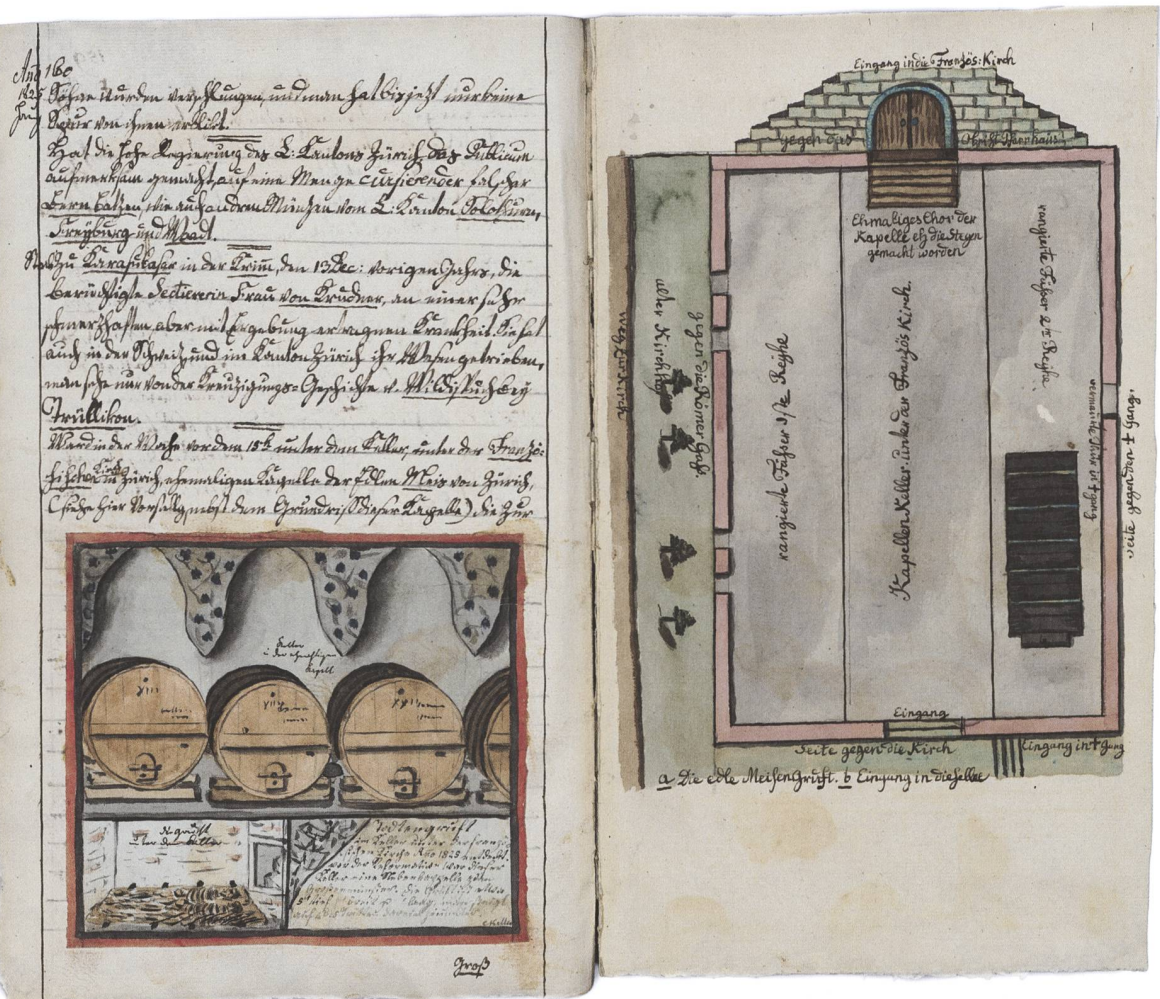 Ano
1825
160
Söhne wurden verschlungen, und man hat bis jezt nur keine
Spur von ihnen erblikt.
Hat die hohe Regierung des L: Kantons Zürich das Publicum
aufmerksam gemacht, auf eine Menge cursierender falscher
Bernbatzen, wie auch andren Münzen vom L: Kanton Solothurn,
Freyburg und Wadt.
zu Karasubasar in der Krim, den 13 Dec: vorigen Jahrs, die
berüchtigte Sectiererin Frau von Krudner, an einer sehr
schmerzhaften, aber mit Ergebung ertragnen Krankheit. Sie hat
auch in der Schweitz, und im Kanton Zürich ihr Wesen getrieben,
man sehe nur von der Kreuzigungs-Geschichte v. Wildispuch bey
Trüllikon.
Ward in der Woche vor dem 15t unter dem Keller, unter der Franzö-
sischen Kirch in Zürich, ehemaligen Kapelle der Edlen Meis von Zürich,
(siehe hier Vorstellg nebst dem Grundriss dieser Kapelle) die zur
Keller
in der ehmahligen
Kapell
die Gruft
unter dem Keller
Todtengruft
im Keller under der Französischen
Kirche Ano 1825 entdekt.
vor der Reformation war dieser
Keller eine Nebenkappelle zum
Grossenmünster.
Groß
Eingang in die Französ: Kirch
gegen das
Obrist Pfarrhaus
Ehmaliges Chor der
Kapelle eh die Stegen
gemacht worden
Weg zur Kirch
alter Kirchhof
gegen die Römer Gass.
rangierte Fässer 1ste Reihe
Kapellen Keller under der Französ Kirch.
rangierte Fässer 2te Reihe
vermaurte Thür in †gang
Seite gegen den † gang.
Eingang
Seite gegen die Kirch
Eingang in †gang
a Die edle Meisen Gruft. b Eingang in dieselbe